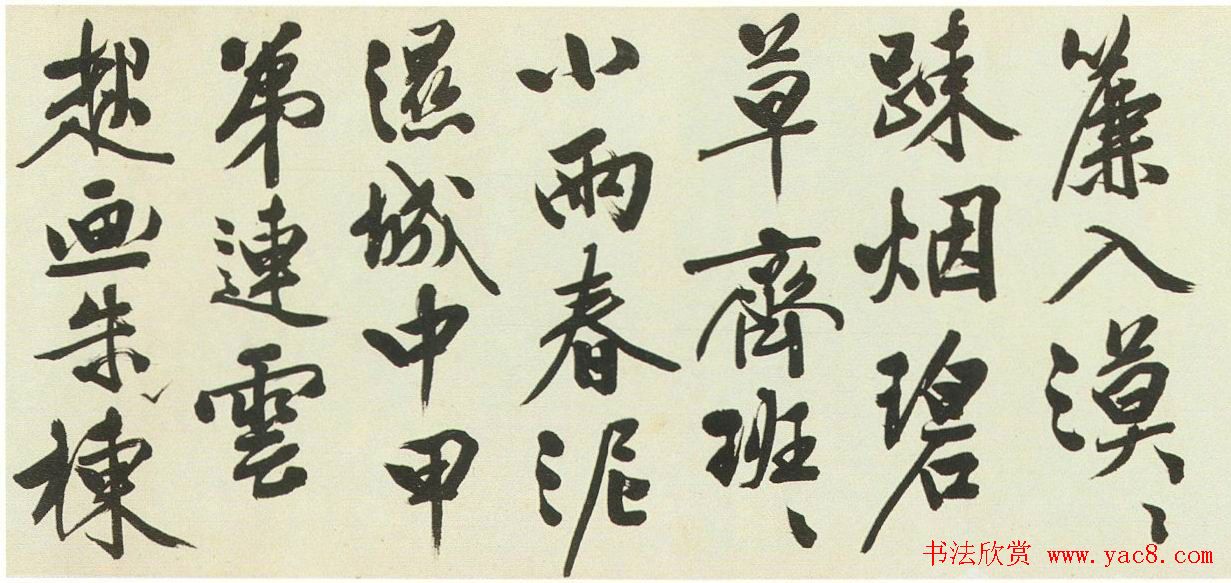 簾入漠、
踈烟碧
草齊班、
小雨春泥
濕城中甲
第連雲
画朱棟
书法欣赏 www.yac8.com